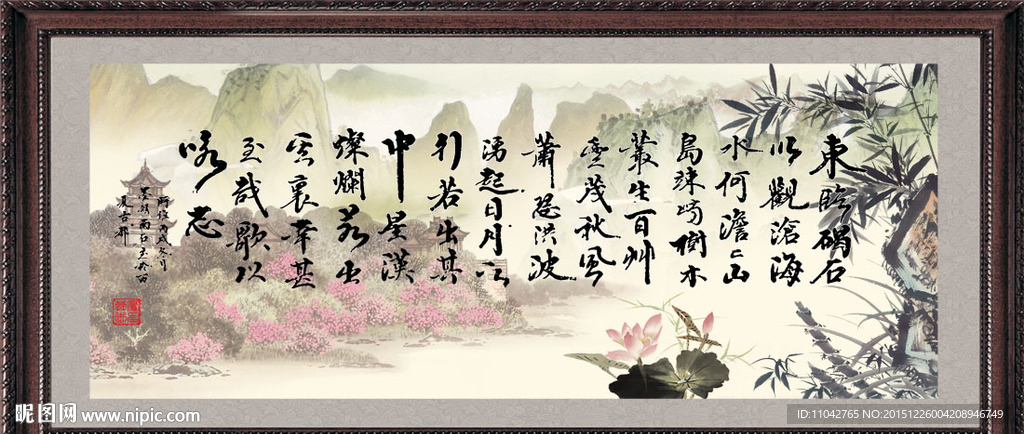 東臨碣石
以觀滄海
水何澹々山
島竦峙樹木
叢生百艸
豐茂秋風
蕭瑟洪波
湧起日月之
行若出其
中星漢
燦爛若出
其裏幸甚
至哉歌以
詠志
丙戌冬月
昵图网 www.nipic.com
ID:11042765 NO:20151226004208946749